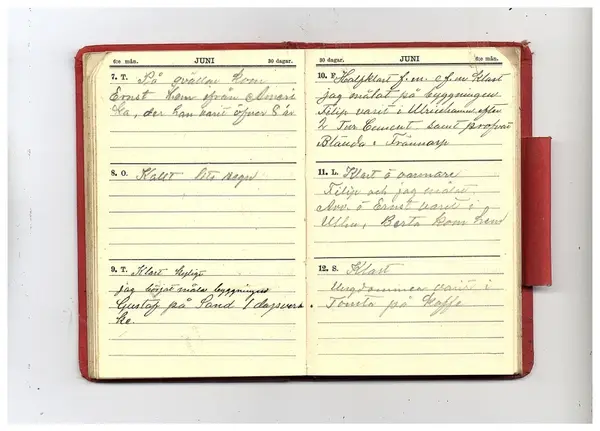 6:e mån. JUNI 30 dagar.
7. T. På qvällen kom
Ernst hem ifrån Ameri
ka, der han varit öfver 8 år
8. O. Kallt lite regn
9. T. Klart kyligt
jag börjat måla byggningen
Gustaf på Sand 1 dagsverk
ke.
30 dagar. JUNI 6:e mån.
10. F. Halfklart f.m. e f.m Klart
jag målat på byggningen
Filip varit i Ulricehamn efter
2 Tur Cement, samt
Blända i Trännarp
11. L. Klart o varmare
Filip och jag målat
Arv. o Ernst varit i
Ulhn, Berta kom hem
12. S. Klart
Ungdommen varit i
Tomta på kaffe